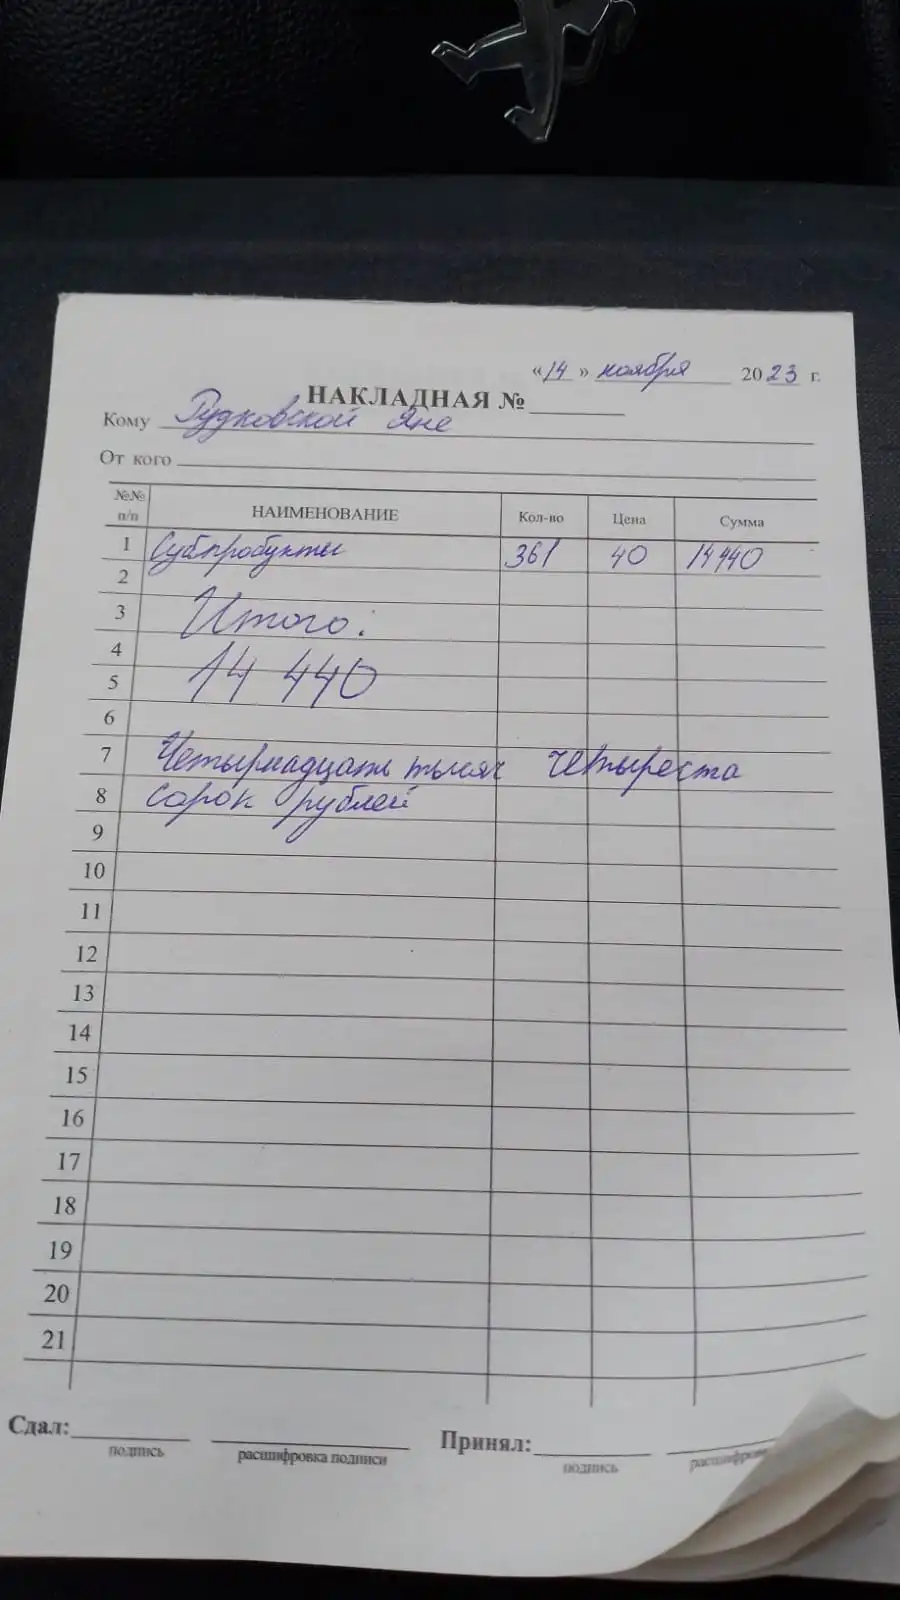 «14» ноября 2023 г.
НАКЛАДНАЯ №
Кому Рудковской Яне
От кого
№№ п/п НАИМЕНОВАНИЕ Кол-во Цена Сумма
1 Субпродукты 361 40 14440
2
3 Итого:
4
5 14 440
6
7 Четырнадцать тысяч четыреста
8 сорок рублей
9
10
11
12
13
14
15
16
17
18
19
20
21
Сдал: Принял:
подпись расшифровка подписи подпись